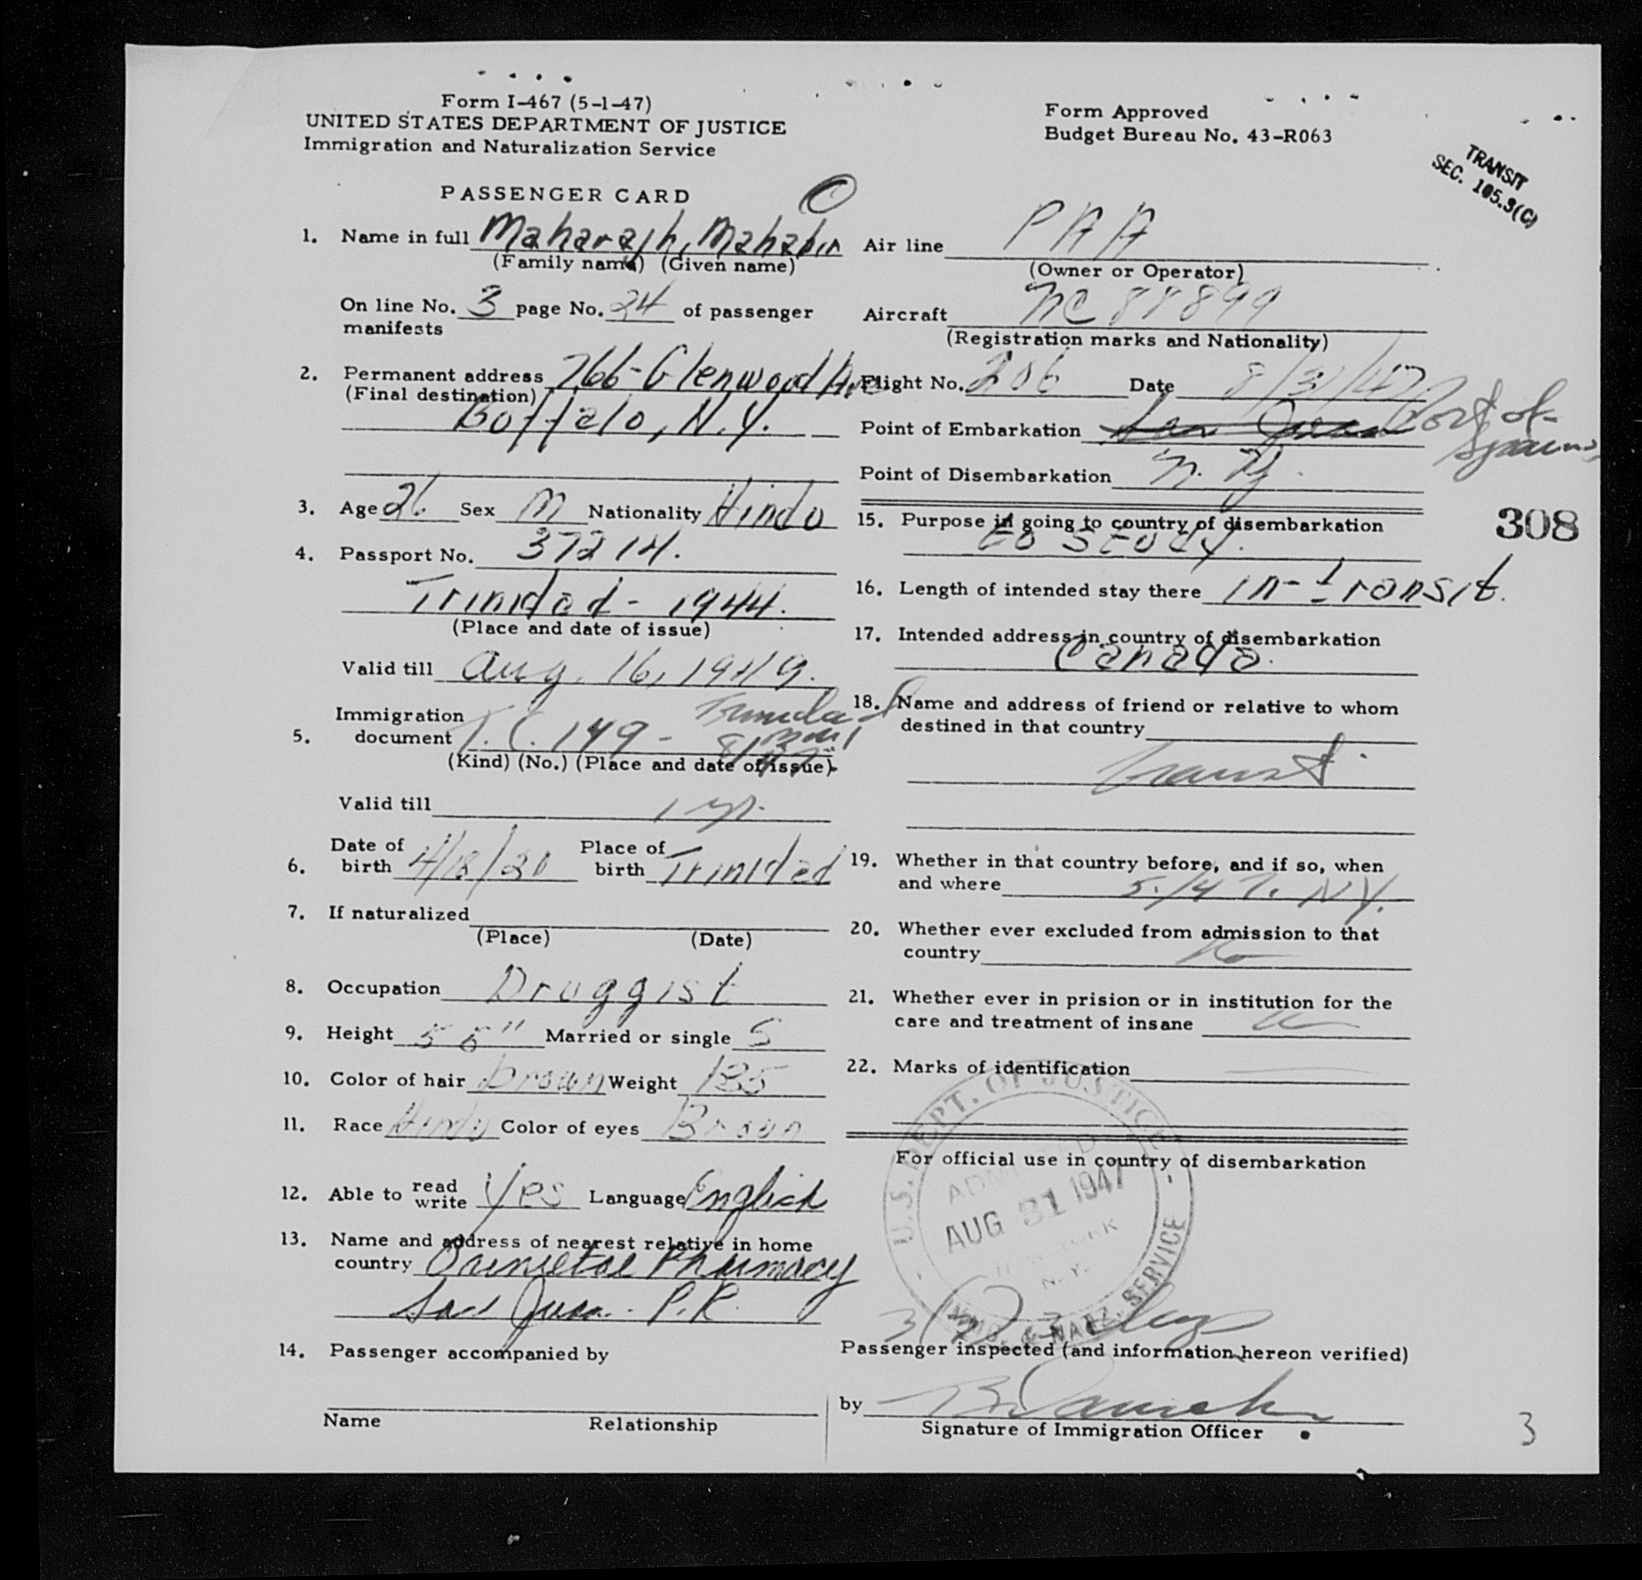 Form I-467 (5-1-47)
UNITED STATES DEPARTMENT OF JUSTICE
Immigration and Naturalization Service
Form Approved
Budget Bureau No. 43-R063
TRANSIT
SEC. 105.3(C)
PASSENGER CARD
1. Name in full Maharajh, Mahabir
(Family name) (Given name)
On line No. 3 page No. 24 of passenger
manifests
2. Permanent address 766-Glenwood Ave
(Final destination)
Buffalo, N.Y.
3. Age 26 Sex M Nationality Hindu
4. Passport No. 37214.
Trinidad - 1944.
(Place and date of issue)
Valid till Aug. 16, 1949.
Immigration Trinidad
5. document T.C. 149 -
(Kind) (No.) (Place and date of issue)
Valid till 1 yr.
6. Date of birth 4/18/20 Place of birth Trinidad
7. If naturalized
(Place) (Date)
8. Occupation Druggist
9. Height 5 6" Married or single S
10. Color of hair Brown Weight 135
11. Race Hindu Color of eyes Brown
12. Able to read write Yes Language English
13. Name and address of nearest relative in home
country Pharmacy
San Juan. P.R.
14. Passenger accompanied by
Name Relationship
Air line PAA
(Owner or Operator)
Aircraft NC 88899
(Registration marks and Nationality)
Flight No. 206 Date 8/31/47
Point of Embarkation San Juan Port of Spain
Point of Disembarkation N. Y.
15. Purpose in going to country of disembarkation
to study.
308
16. Length of intended stay there in-transit.
17. Intended address in country of disembarkation
Canada.
18. Name and address of friend or relative to whom
destined in that country
Transit
19. Whether in that country before, and if so, when
and where 5/47. NY.
20. Whether ever excluded from admission to that
country No
21. Whether ever in prision or in institution for the
care and treatment of insane No
22. Marks of identification
For official use in country of disembarkation
U.S. DEPT. OF JUSTICE
ADMITTED
AUG 31 1947
NEW YORK
N.Y.
IMMIG. & NATZ. SERVICE
Passenger inspected (and information hereon verified)
by
Signature of Immigration Officer
3